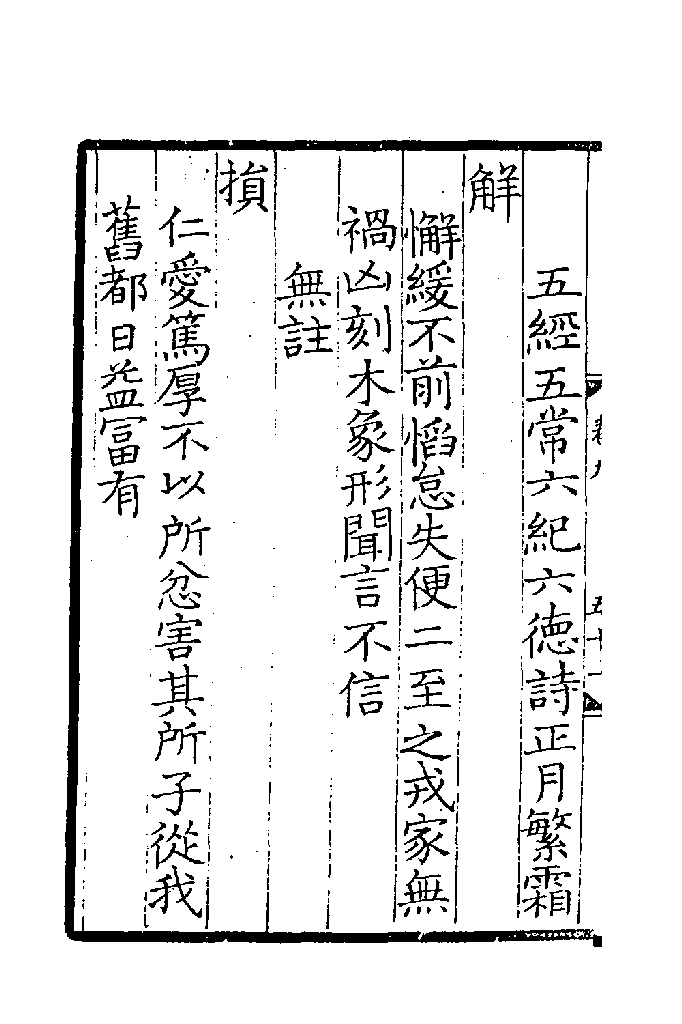 五經五常六紀六徳詩正月繁霜
解
懈緩不前慆怠失便二至之戎家無
禍凶刻木象形聞言不信
無註
損
仁愛篤厚不以所忿害其所子從我
舊都日益冨有